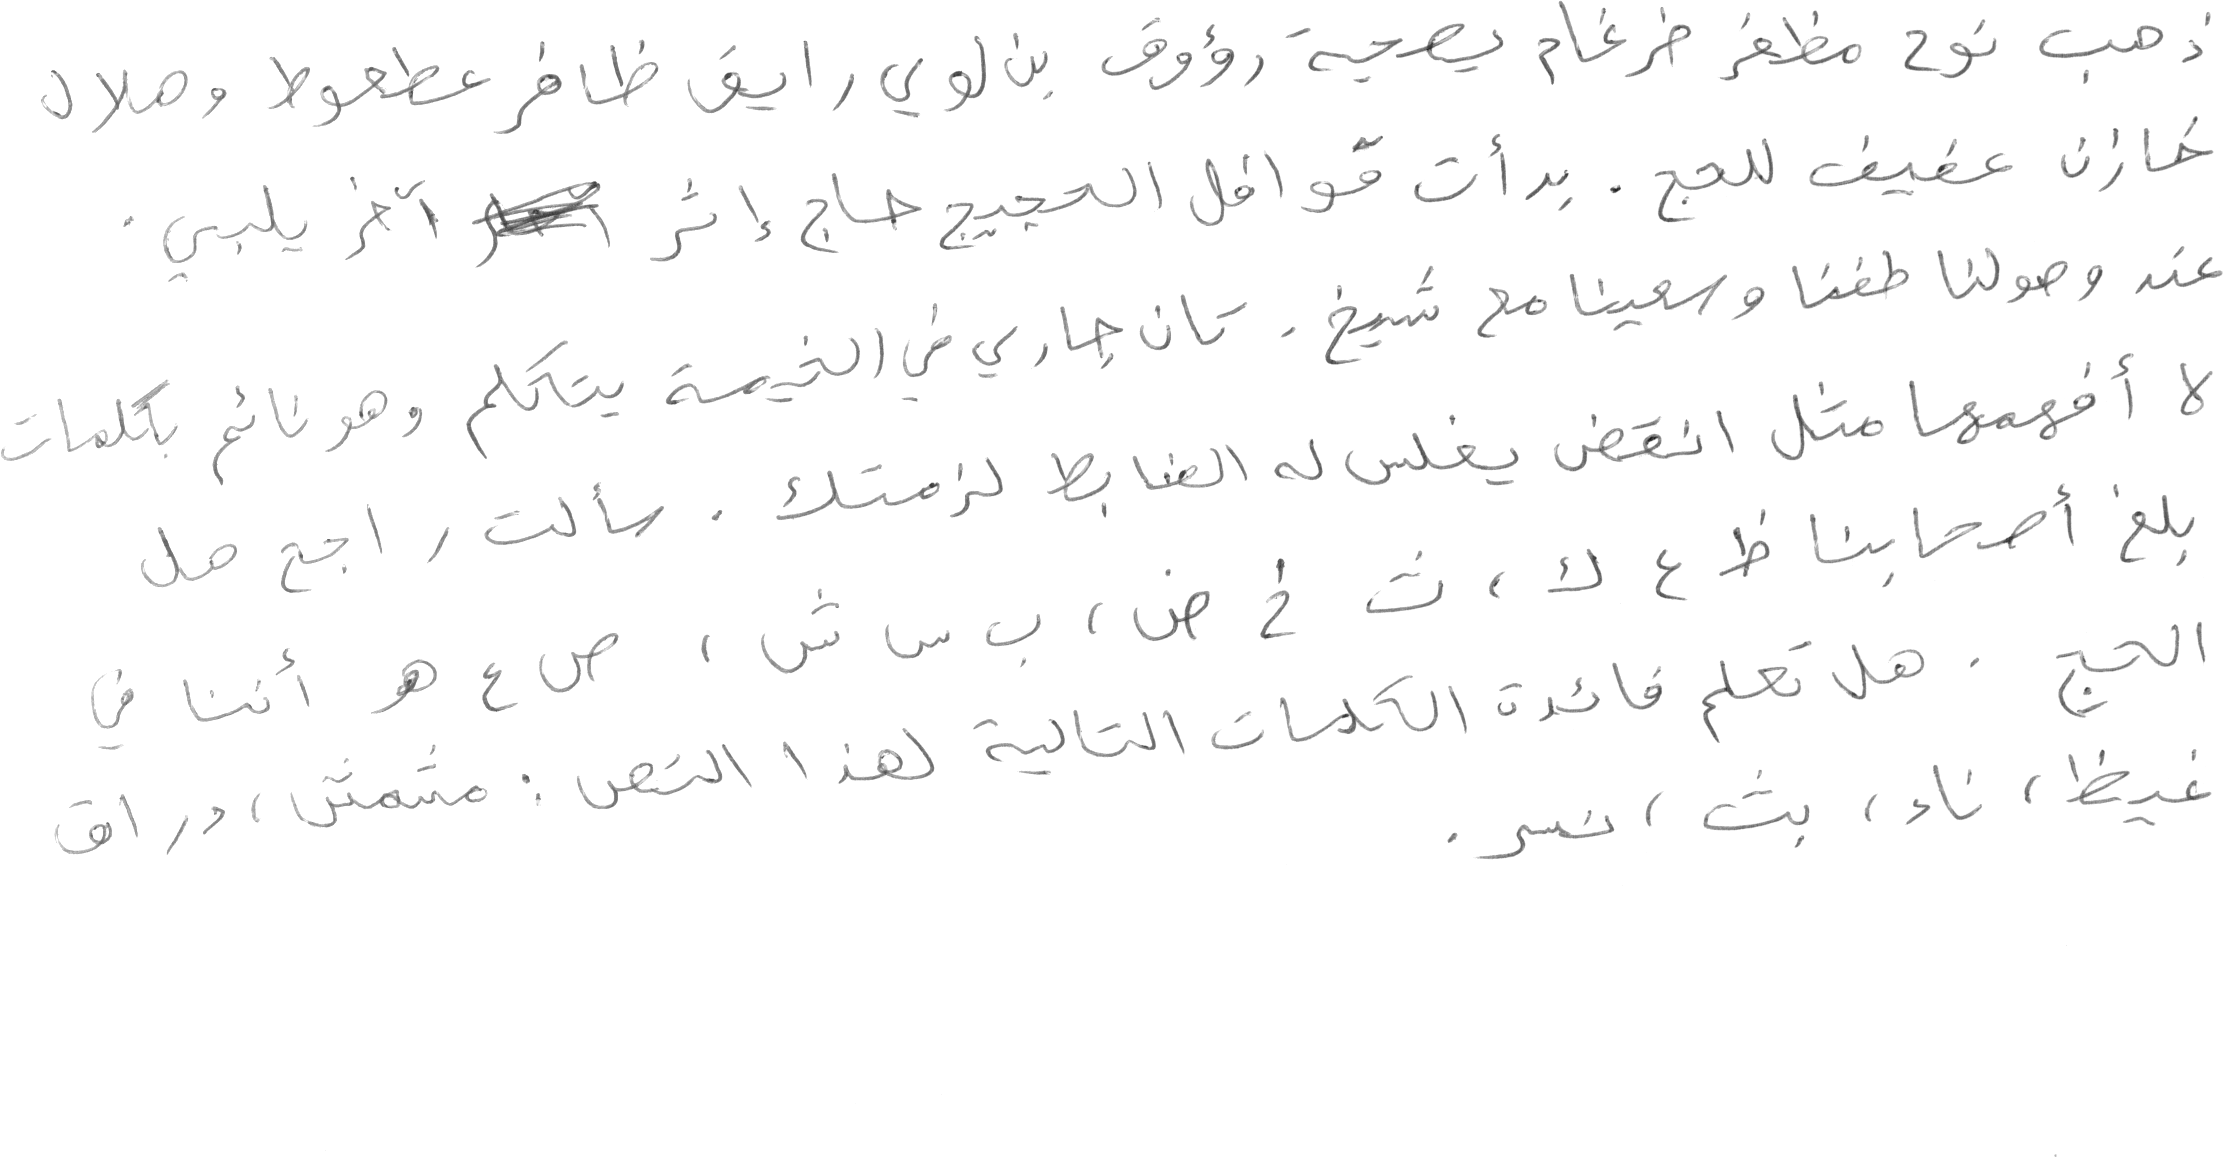 ذهب نوح مظفر ضرغام بصحبة رؤوف بن لوي رايق ظافر عطعوط وهلال
خازن عفيف للحج . بدأت قوافل الحجيج حاج إثر آخر يلبي .
عند وصولنا طفنا وسعينا مع شيخ . كان جاري في الخيمة يتكلم وهو نائم بكلمات
لا أفهمها مثل انقض يغلس له الضابط لزمتك . سألت راجح هل
بلغ أصحابنا ظ ع ك ، ث خ ض ، ب س ش ، ص ع هو أننا في
الحج . هل تعلم فائدة الكلمات التالية لهذا النص : مشمش ، دراق
غيظ ، ناء ، بث ، نسر .